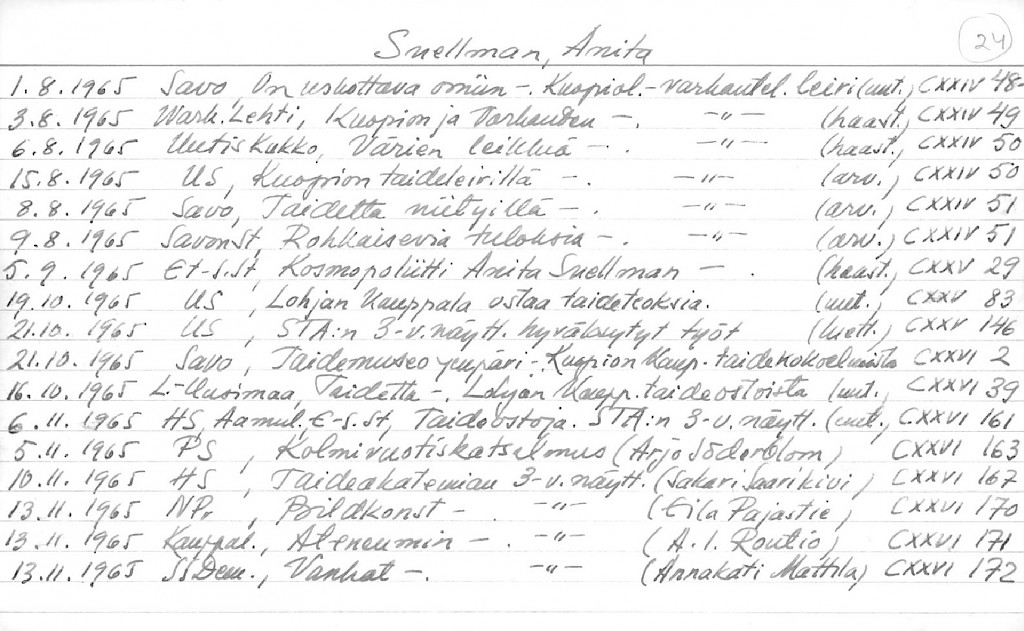 24
Snellman, Anita
1.8.1965 Savo, On uskottava omiin -. Kuopiol.-varkautel. leiri (uut.) CXXIV 48-
3.8.1965 Wark. Lehti, Kuopion ja Varkauden -. -"- (haast.) CXXIV 49
6.8.1965 Uutis Kukko, Värien leikkiä -. -"- (haast.) CXXIV 50
15.8.1965 US, Kuopion taideleirillä -. -"- (arv.) CXXIV 50
8.8.1965 Savo, Taidetta niityillä -. -"- (arv.) CXXIV 51
9.8.1965 SavonSt, Rohkaisevia tuloksia -. -"- (arv.) CXXIV 51
5.9.1965 Et-s.St, Kosmopoliitti Anita Snellman -. (haast.) CXXV 29
19.10.1965 US, Lohjan Kauppala ostaa taideteoksia. (uut.) CXXV 83
21.10.1965 US, STA:n 3-v.näytt. hyväksytyt työt (luett.) CXXV 146
21.10.1965 Savo, Taidemuseo ympäri-. Kuopion Kaup. taidekokoelmista CXXVI 2
16.10.1965 L-Uusimaa, Taidetta -. Lohjan Kaupp. taideostoista (uut.) CXXVI 39
6.11.1965 HS, Aamul. E-s.St, Taideostoja. STA:n 3-v. näytt. (uut.) CXXVI 161
5.11.1965 PS, Kolmivuotiskatselmus (Arjo Söderblom) CXXVI 163
10.11.1965 HS, Taideakatemian 3-v. näytt. (Sakari Saarikivi) CXXVI 167
13.11.1965 NPr, Bildkonst -. -"- (Eila Pajastie) CXXVI 170
13.11.1965 Kauppal., Ateneumin -. -"- (A.I. Routio) CXXVI 171
13.11.1965 SsDem., Vanhat -. -"- (Annakati Mattila) CXXVI 172